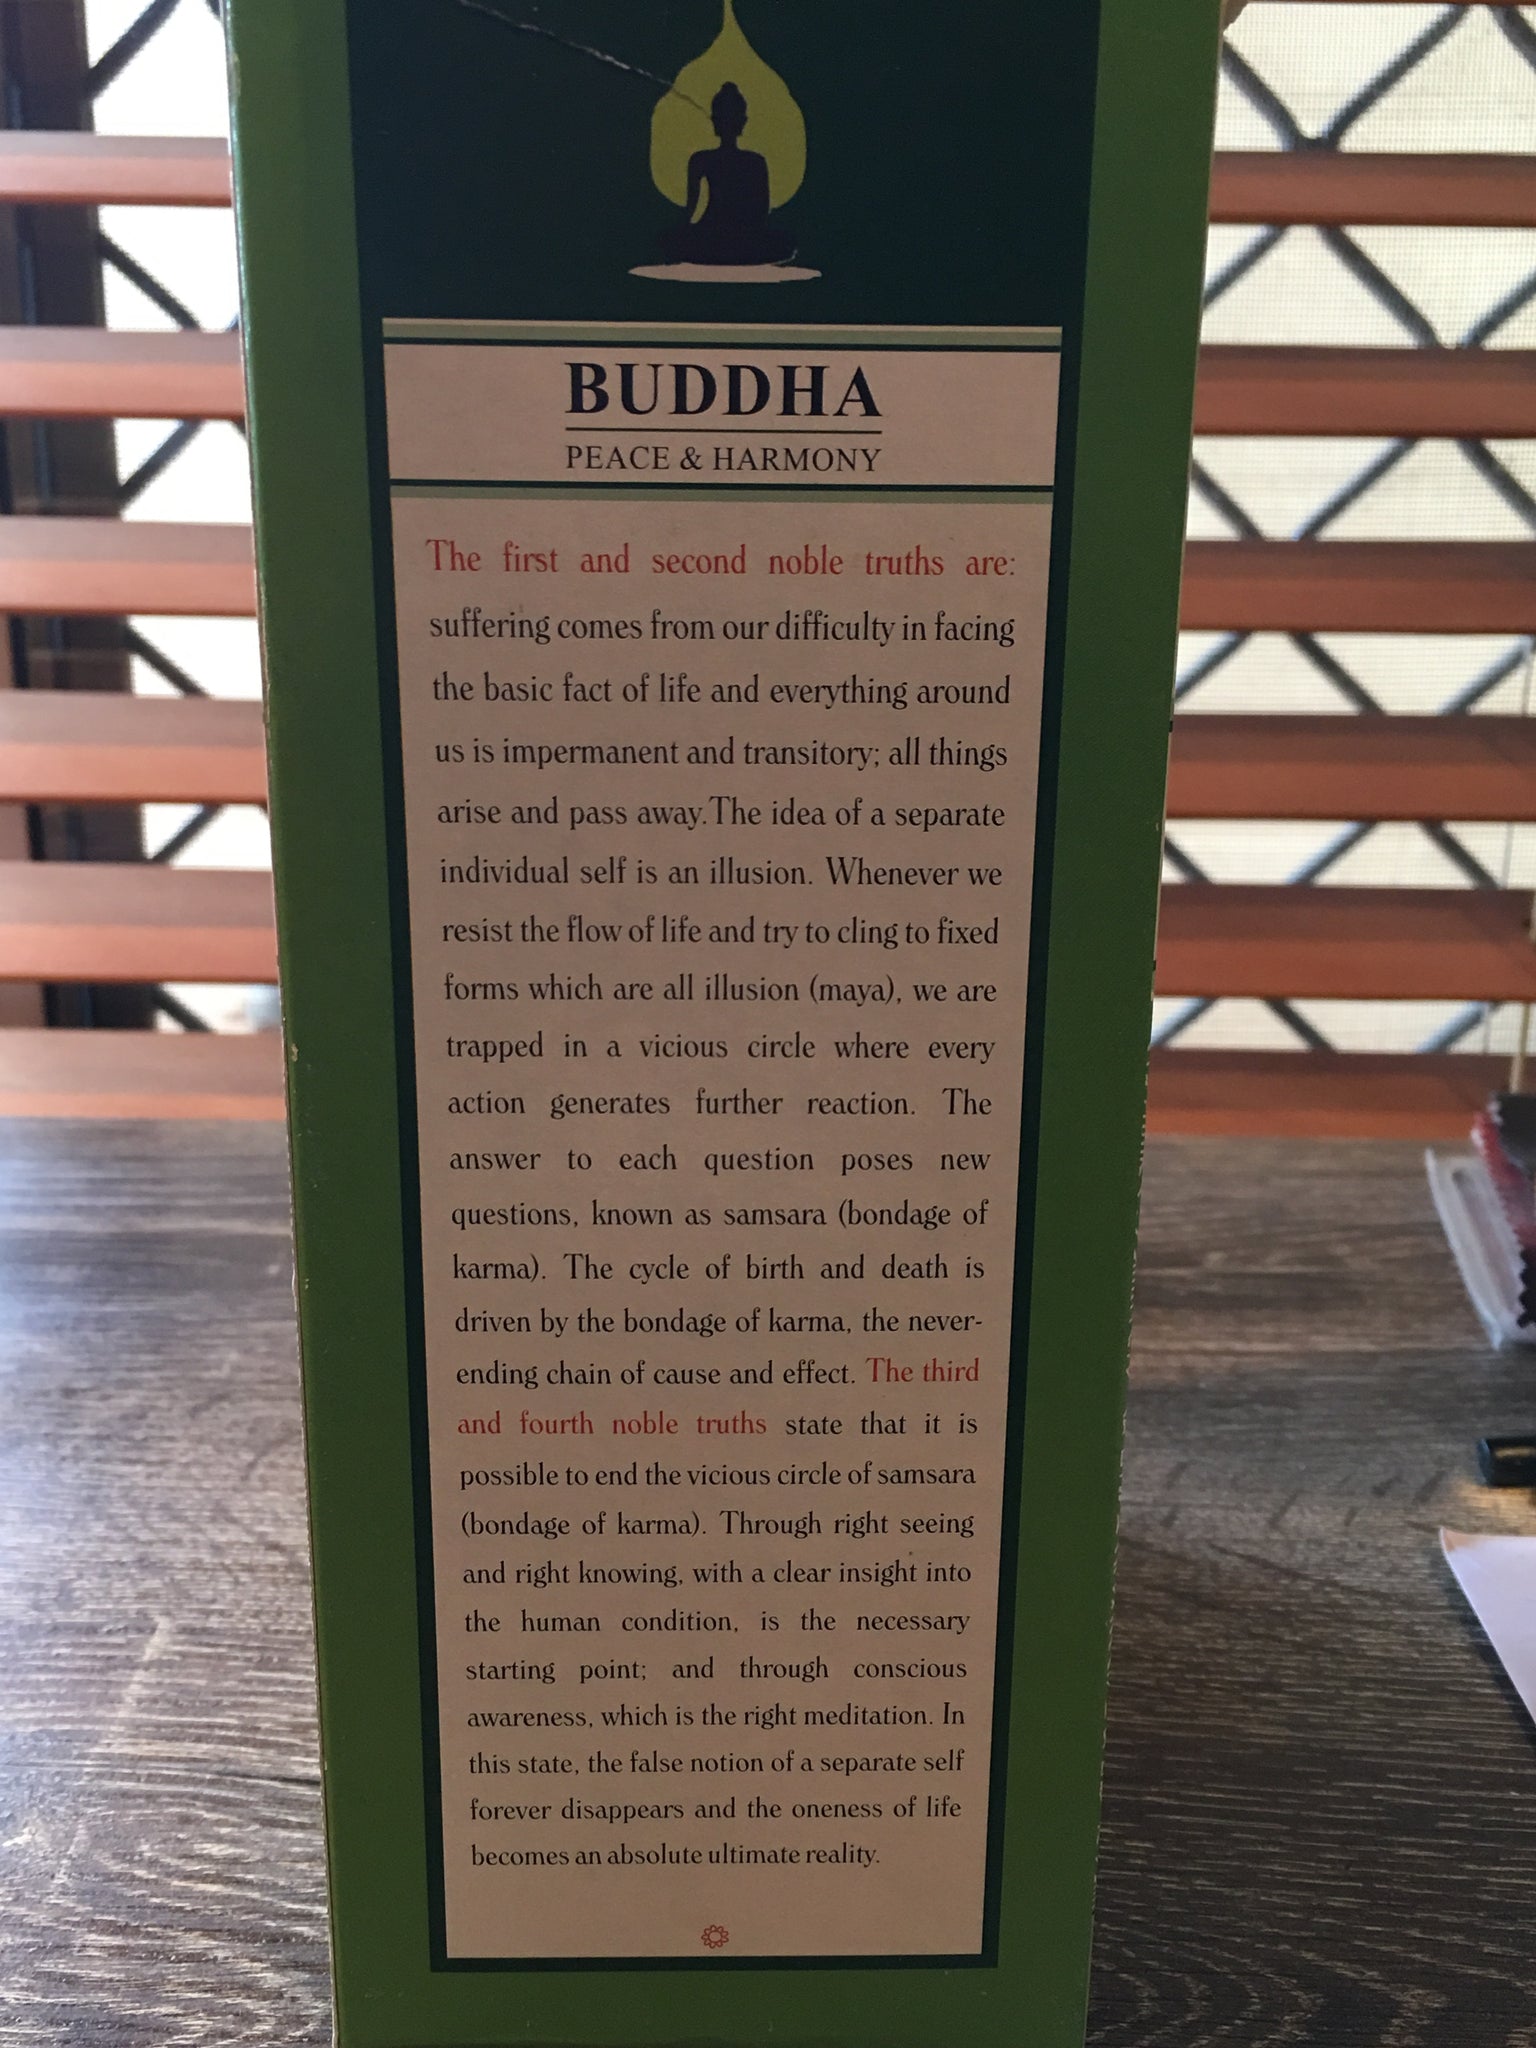 BUDDHA
PEACE & HARMONY
The first and second noble truths are:
suffering comes from our difficulty in facing
the basic fact of life and everything around
us is impermanent and transitory; all things
arise and pass away.The idea of a separate
individual self is an illusion. Whenever we
resist the flow of life and try to cling to fixed
forms which are all illusion (maya), we are
trapped in a vicious circle where every
action generates further reaction. The
answer to each question poses new
questions, known as samsara (bondage of
karma). The cycle of birth and death is
driven by the bondage of karma, the never-
ending chain of cause and effect. The third
and fourth noble truths state that it is
possible to end the vicious circle of samsara
(bondage of karma). Through right seeing
and right knowing, with a clear insight into
the human condition, is the necessary
starting point; and through conscious
awareness, which is the right meditation. In
this state, the false notion of a separate self
forever disappears and the oneness of life
becomes an absolute ultimate reality.